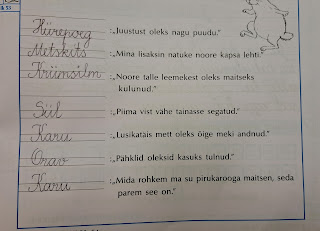 Hiirepoeg :„Juustust oleks nagu puudu.”
Metskits :„Mina lisaksin natuke noore kapsa lehti.”
Kriimsilm :„Noore talle leemekest oleks maitseks
kulunud.”
Siil :„Piima vist vähe tainasse segatud.”
Karu :„Lusikatäis mett oleks õige meki andnud.”
Orav :„Pähklid oleksid kasuks tulnud.”
Karu :„Mida rohkem ma su pirukarooga maitsen, seda
parem see on.”